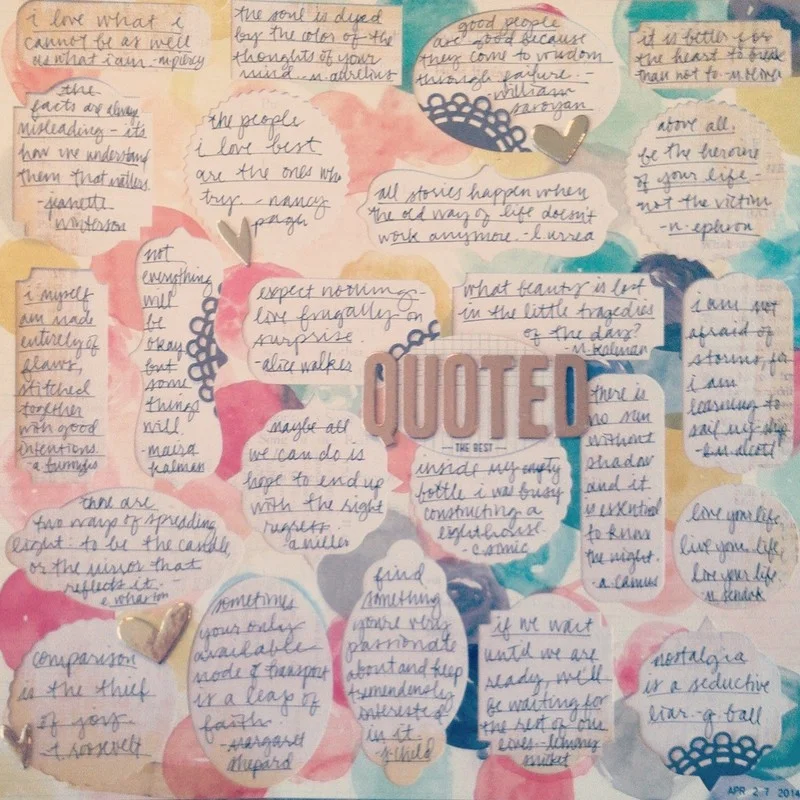 i love what i
cannot be as well
as what i am - m piercy
the soul is dyed
by the color of the
thoughts of your
mind - m. aurelius
good people
are good because
they come to wisdom
through failure. -
william
saroyan
it is better for
the heart to break
than not to - m oliver
the
facts are always
misleading - it's
how we understand
them that matters.
- jeanette
winterson
the people
i love best
are the ones who
try. - nancy
pagh
all stories happen when
the old way of life doesn't
work anymore. - l. urrea
above all,
be the heroine
of your life -
not the victim
- n. ephron
i myself
am made
entirely of
flaws,
stitched
together
with good
intentions.
- a burroughs
not
everything
will
be
okay
but
some
things
will.
- maira
kalman
expect nothing -
live frugally on
surprise.
- alice walker
what beauty is lost
in the little tragedies
of the day?
- m. kalman
i am not
afraid of
storms, for
i am
learning to
sail my ship
- l.m. alcott
QUOTED
THE BEST
maybe all
we can do is
hope to end up
with the right
regrets.
a. miller
inside my empty
bottle i was busy
constructing a
lighthouse.
there is
no sun
without
shadow
and it
is essential
to know
the night.
- a. camus
there are
two ways of spreading
light: to be the candle,
or the mirror that
reflects it. -
e. wharton
love your life,
live your life,
love your life.
m. sendak
comparison
is the thief
of joy.
- t. roosevelt
sometimes
your only
available
mode of transport
is a leap of
faith.
- margaret
shepard
find
something
you're very
passionate
about and keep
tremendously
interested
in it.
- j. child
if we wait
until we are
ready, we'll
be waiting for
the rest of our
lives - lemony
snicket
nostalgia
is a seductive
liar. - g. ball
APR 27 2014